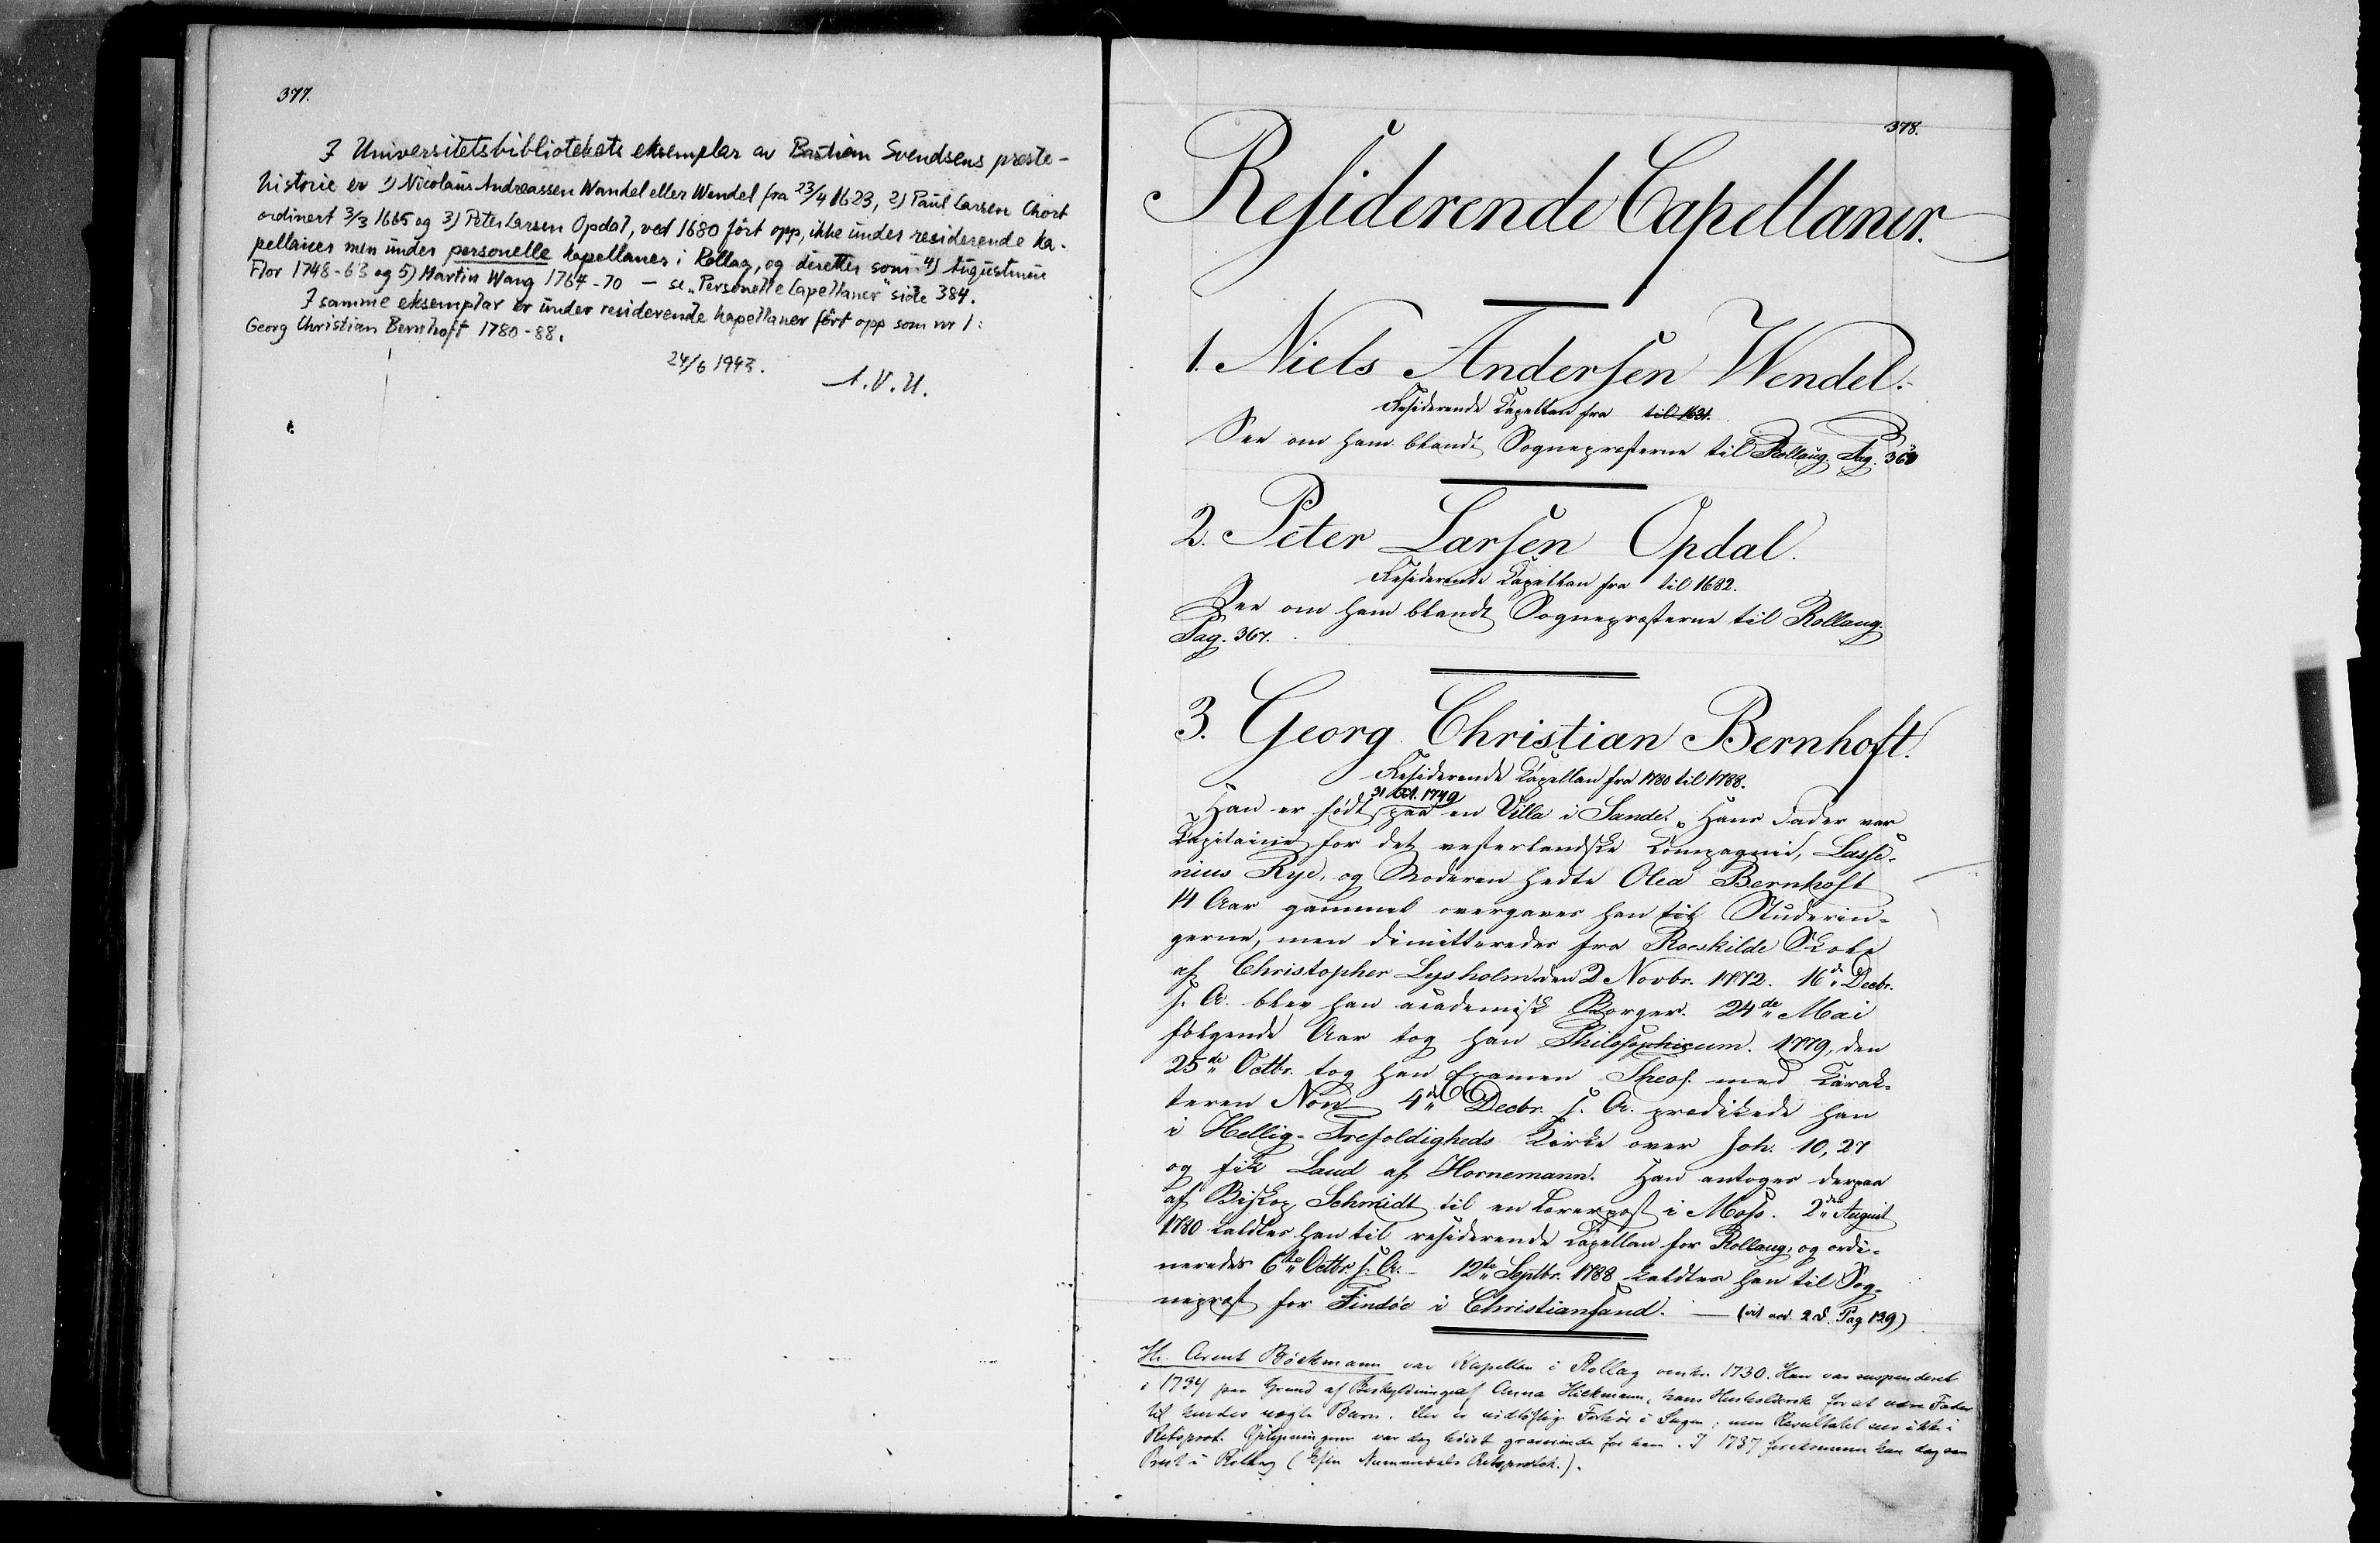 377.
I Universitetsbibliotekets eksemplar av Bastian Svendsens preste-
historie er 1) Nicolaus Andreassen Wandel eller Wendel fra 23/4 1623, 2) Paul Larsen Chort
ordinert 3/3 1665 og 3) Peter Larsen Opdal, ved 1680 ført opp, ikke under residerende ka-
pellaner men under personelle kapellaner i Rollag, og deretter som 4) Augustinus
Flor 1748-63 og 5) Martin Wang 1764-70 — se „Personelle Capellaner" side 384.
I samme eksemplar er under residerende kapellaner ført opp som nr 1:
Georg Christian Bernhoft 1780-88.
24/6 1943.
A.V.U.
378.
Residerende Capellaner.
1. Niels Andersen Wendel.
Residerende Kapellan fra til 1631.
See om ham blandt Sognepræsterne til Rollaug. Pag. 360
2. Peter Larsen Opdal.
Residerende Kapellan fra til 1682.
See om ham blandt Sognepræsterne til Rollaug.
Pag. 367.
3. Georg Christian Bernhoft.
Residerende Kapellan fra 1780 til 1788.
31 Oct. 1749
Han er født paa en Villa i Sande. Hans Fader var
Kapitaine for det vesterlandske Kompagnie, Lasse-
nius Rye, og Moderen hedte Olea Bernhoft
14 Aar gammel overgaves han til Studerin-
gerne, men dimitteredes fra Roeskilde Skole
af Christopher Lysholm den 2 Novbr. 1772. 16de Decbr.
s. A. blev han academisk Borger. 24de Mai
følgende Aar tog han Philosophicum. 1779, den
25de Octbr. tog han Examen Theol. med Karak-
teren Non. 4de Decbr. s. A. prædikede han
i Hellig-Trefoldigheds Kirke over Joh. 10, 27
og fik Laud af Hornemann. Han antoges derpaa
af Biskop Schmidt til en Lærerpost i Moss. 2den August
1780 kaldtes han til residerende Kapellan for Rollaug, og ordi-
neredes 6te Octbr. s. A. - 12te Septbr. 1788 kaldtes han til Sog-
nepræst for Findöe i Christiansand. — (vid. 2 d. Pag 129)
Hr. Arent Böckmann var Kapellan i Rollag omkr. 1730. Han var suspenderet
i 1734 paa Grund af Beskyldning af Anna Hickmann, hans Husholderske for at være Fader
til hendes uægte Barn. Der er vidløftige Forhör i Sagen; men Resultatet sees ikke i
Retsprot. Oplysningerne var dog höist graverende for ham. I 1737 forekommer han dog som
Præst i Rollag (Efter Nummedals Retsprotok.).